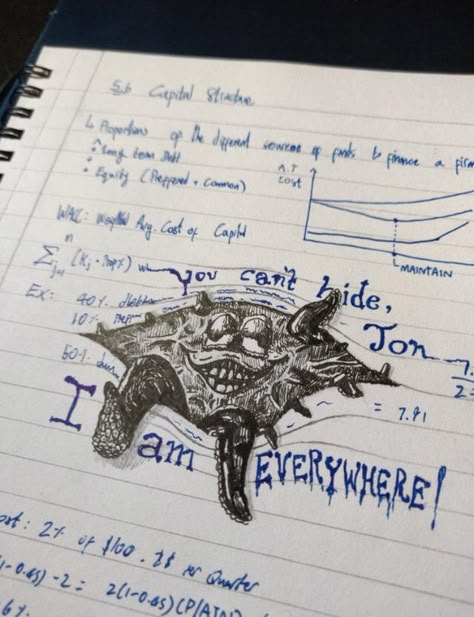 5.6 Capital Structure
↳ Proportions of the different sources of funds to finance a firm
• Long term Debt
• Equity (Preferred + Common)
A.T
Cost
MAINTAIN
WACC: Weighted Avg. Cost of Capital
n
∑ (Kj · Propj)
j=1
You can't hide,
Jon
Ex: 40%
10%
50%
= 7.91
I
am
EVERYWHERE!
2% of $100. $$ per Quarter
(1-0.65) - 2 = 2(1-0.65)(P/A